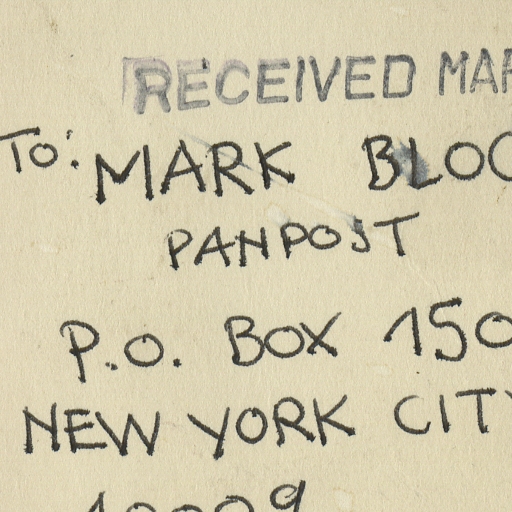 RECEIVED MAR
To: MARK BLOC
PANPOST
P.O. BOX 150
NEW YORK CITY
10009